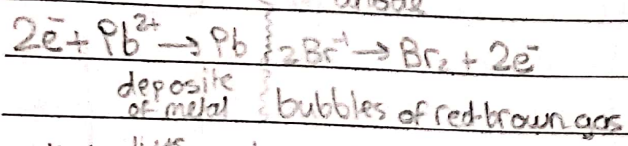 2e⁻ + Pb²⁺ → Pb
2Br⁻¹ → Br₂ + 2e⁻
deposite
of metal
bubbles of red-brown gas